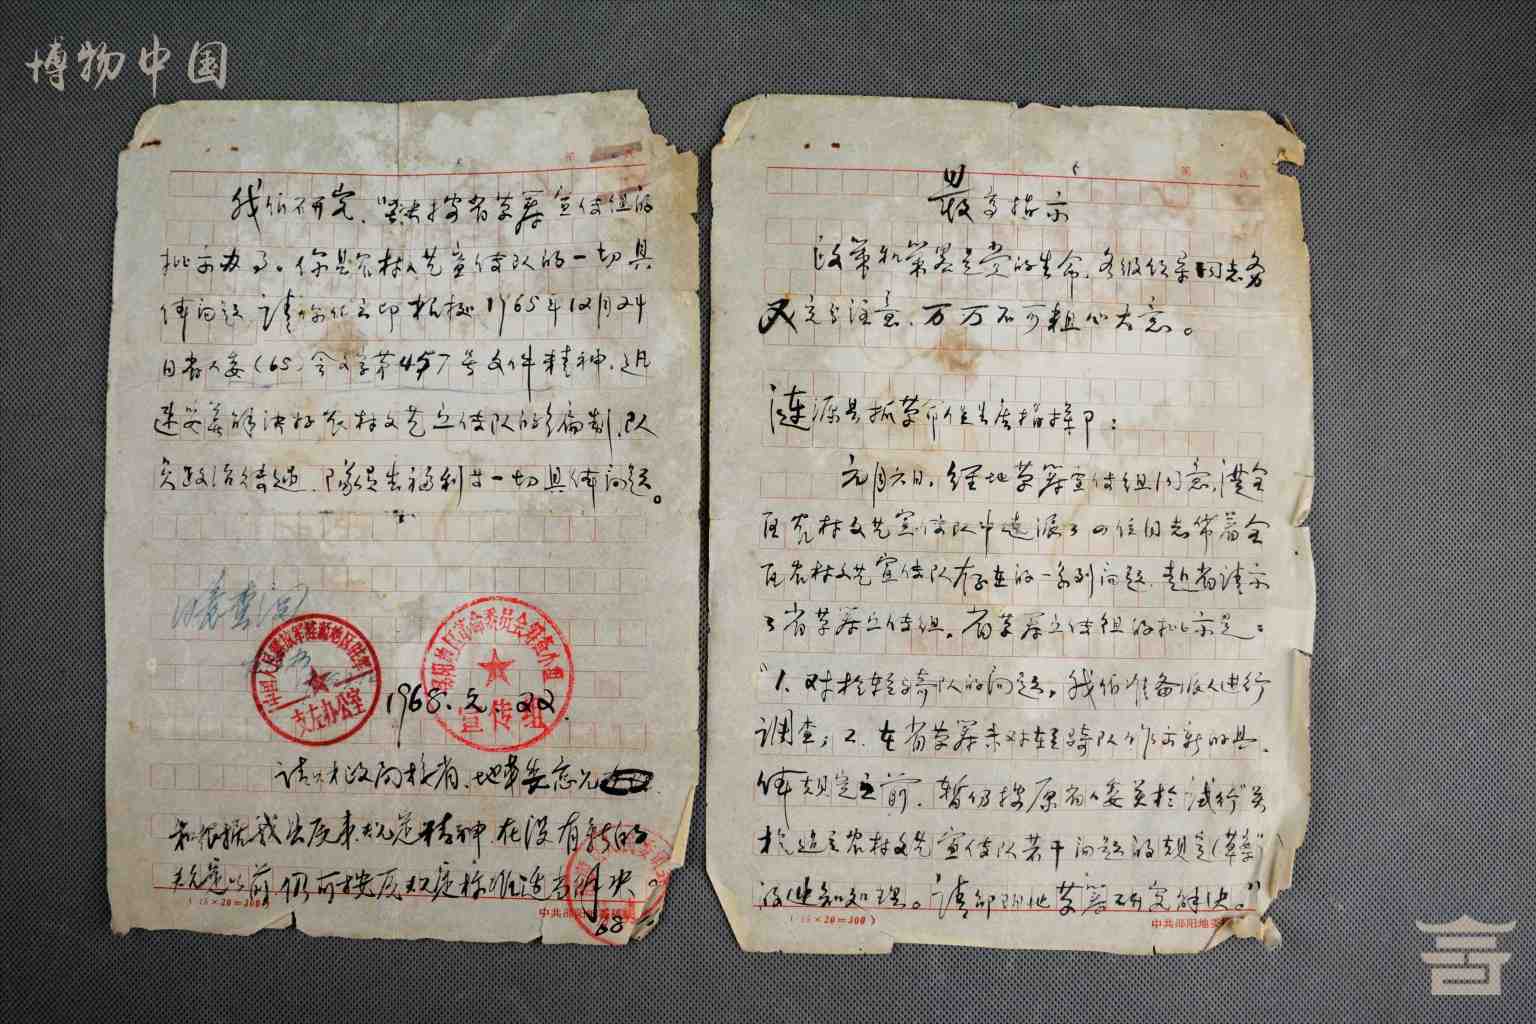 博物中国
最高指示
政策和策略是党的生命，各级领导同志务
必充分注意，万万不可粗心大意。
涟源县抓革命促生产指挥部：
元月六日，经地革筹宣传组同意，从全
区农村文艺宣传队中选派了四位同志带着全
区农村文艺宣传队存在的一系列问题，赴省请示
了省革筹宣传组。省革筹宣传组的批示是：
"1、对于轻骑队的问题，我们准备派人进行
调查；2、在省革筹未对轻骑队作出新的具
体规定之前，暂仍按原省人委关于试行"关
于建立农村文艺宣传队若干问题的规定(草案)"
的通知处理。请邵阳地革筹研究解决。"
第 页
(15×20=300)
中共邵阳地委
我们研究，坚决按省革筹宣传组的
批示办事。你县农村文艺宣传队的一切具
体问题，请你们立即根据1965年12月24
日省人委(65)会文字第457号文件精神，迅
速妥善解决好农村文艺宣传队的编制、队
员政治待遇、队员生活福利等一切具体问题。
中国人民解放军 支左办公室
邵阳地区革命委员会筹备小组
宣传组
1968.元.22.
和根据 原来规定精神 在没有新的
规定以前 仍可按原规定标准适当解决。
68
第 页
(15×20=300)
中共邵阳地委